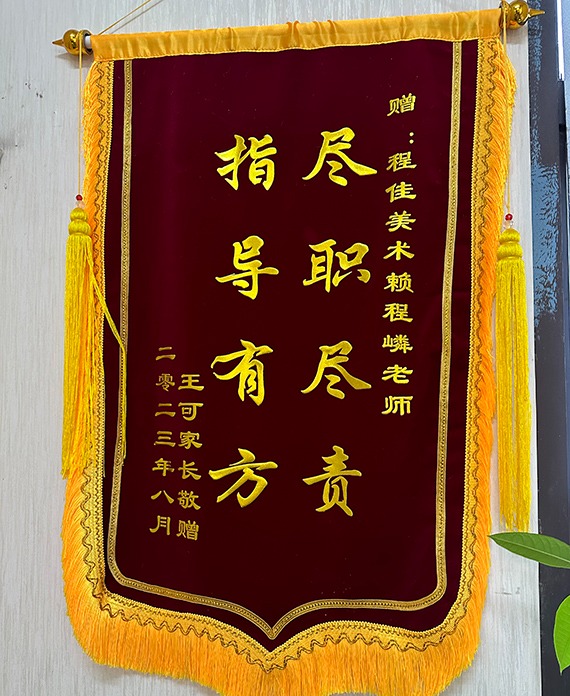 赠：程佳美术赖程嶙老师
尽职尽责
指导有方
王可家长敬赠
二零二三年八月